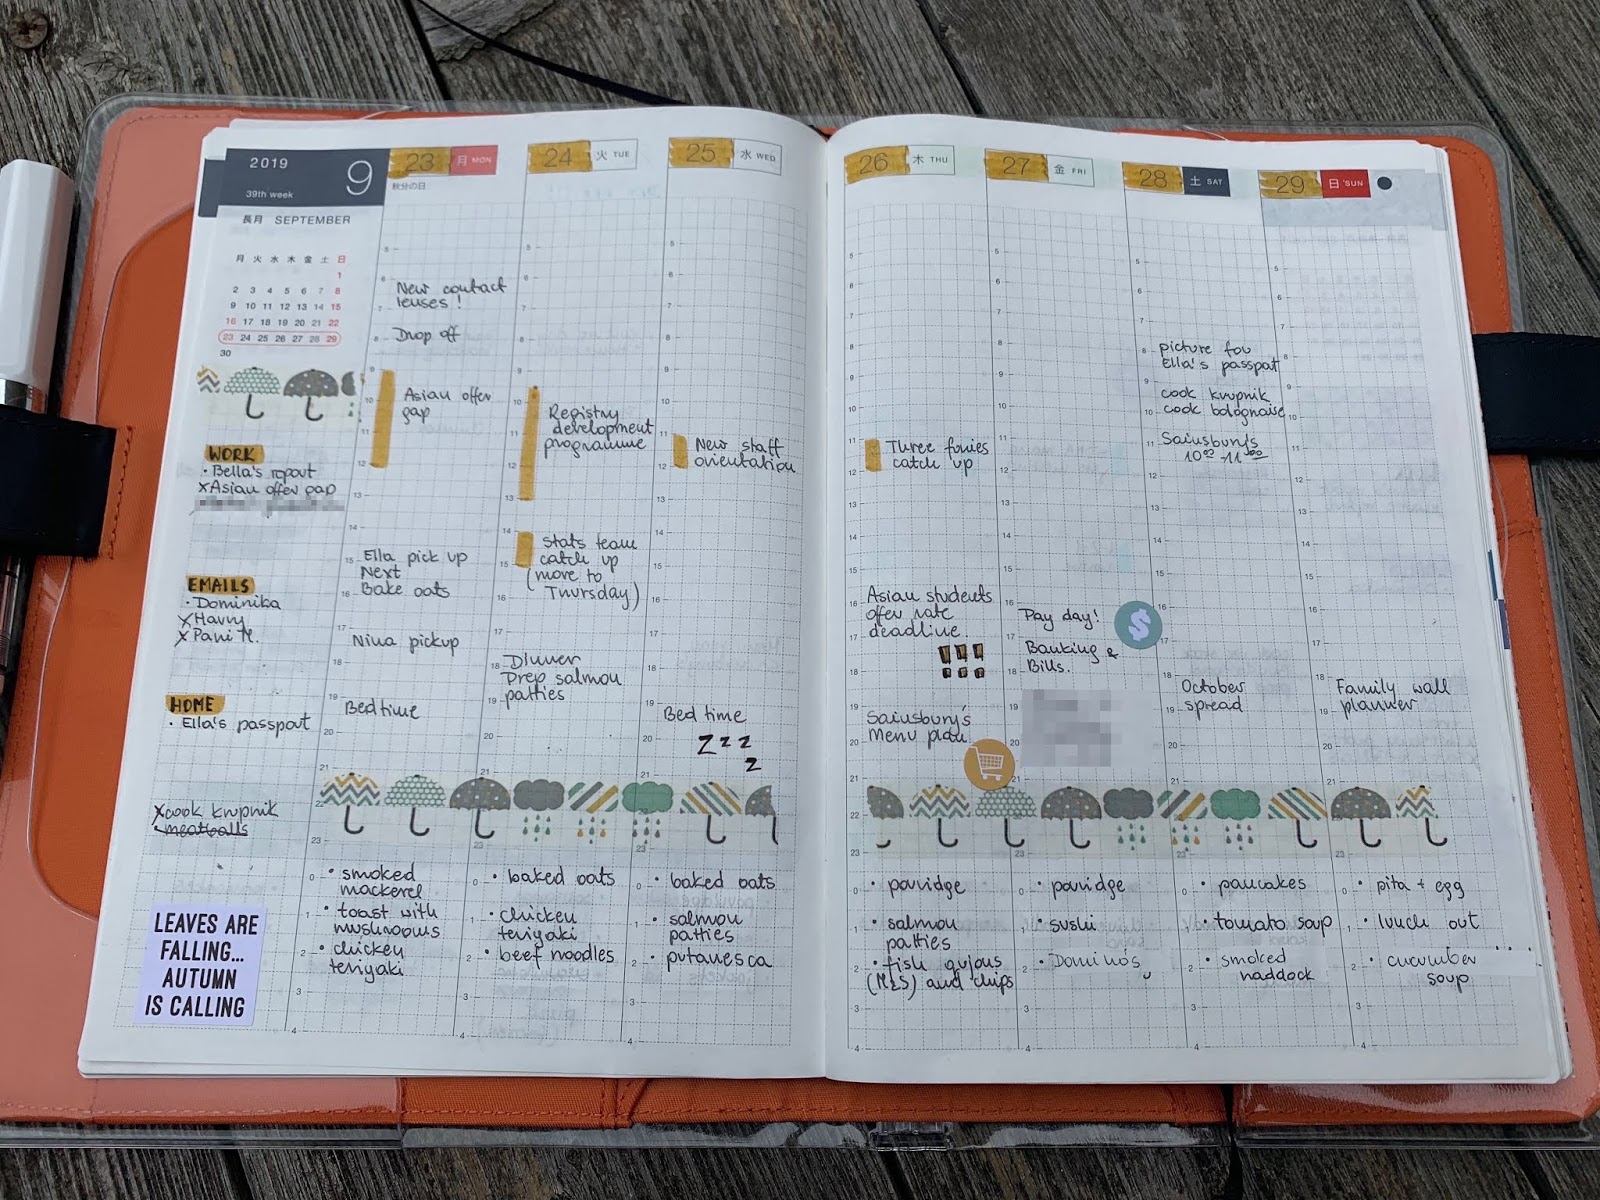 2019
9
39th week
長月 SEPTEMBER
月 火 水 木 金 土 日
1
2 3 4 5 6 7 8
9 10 11 12 13 14 15
16 17 18 19 20 21 22
23 24 25 26 27 28 29
30
WORK
• Bella's report
x Asian offer gap
EMAILS
• Dominika
x Harry
x Pani M.
HOME
• Ella's passport
x cook krupnik
• meatballs
LEAVES ARE
FALLING...
AUTUMN
IS CALLING
23 月 MON
秋分の日
New contact
lenses!
Drop off
Asian offer
gap
Ella pick up
Next
Bake oats
Nina pickup
Bedtime
• smoked
mackerel
• toast with
mushrooms
• chicken
teriyaki
24 火 TUE
Registry
development
programme
Stats team
catch up
(move to
Thursday)
Dinner
Prep salmon
patties
• baked oats
• chicken
teriyaki
• beef noodles
25 水 WED
New staff
orientation
Bed time
Zzz
z
• baked oats
• salmon
patties
• putanesca
26 木 THU
Three fories
catch up
Asian students
offer rate
deadline
!!!
Sainsbury's
Menu plan
• porridge
• salmon
patties
• fish gujons
(M&S) and chips
27 金 FRI
Pay day!
$
Banking &
Bills.
• porridge
• sushi
• Domino's
28 土 SAT
picture for
Ella's passport
cook krupnik
cook bolognaise
Sainsbury's
10:00-11:00
October
spread
• pancakes
• tomato soup
• smoked
haddock
29 日 SUN
Family wall
planner
• pita + egg
• lunch out
• cucumber
soup